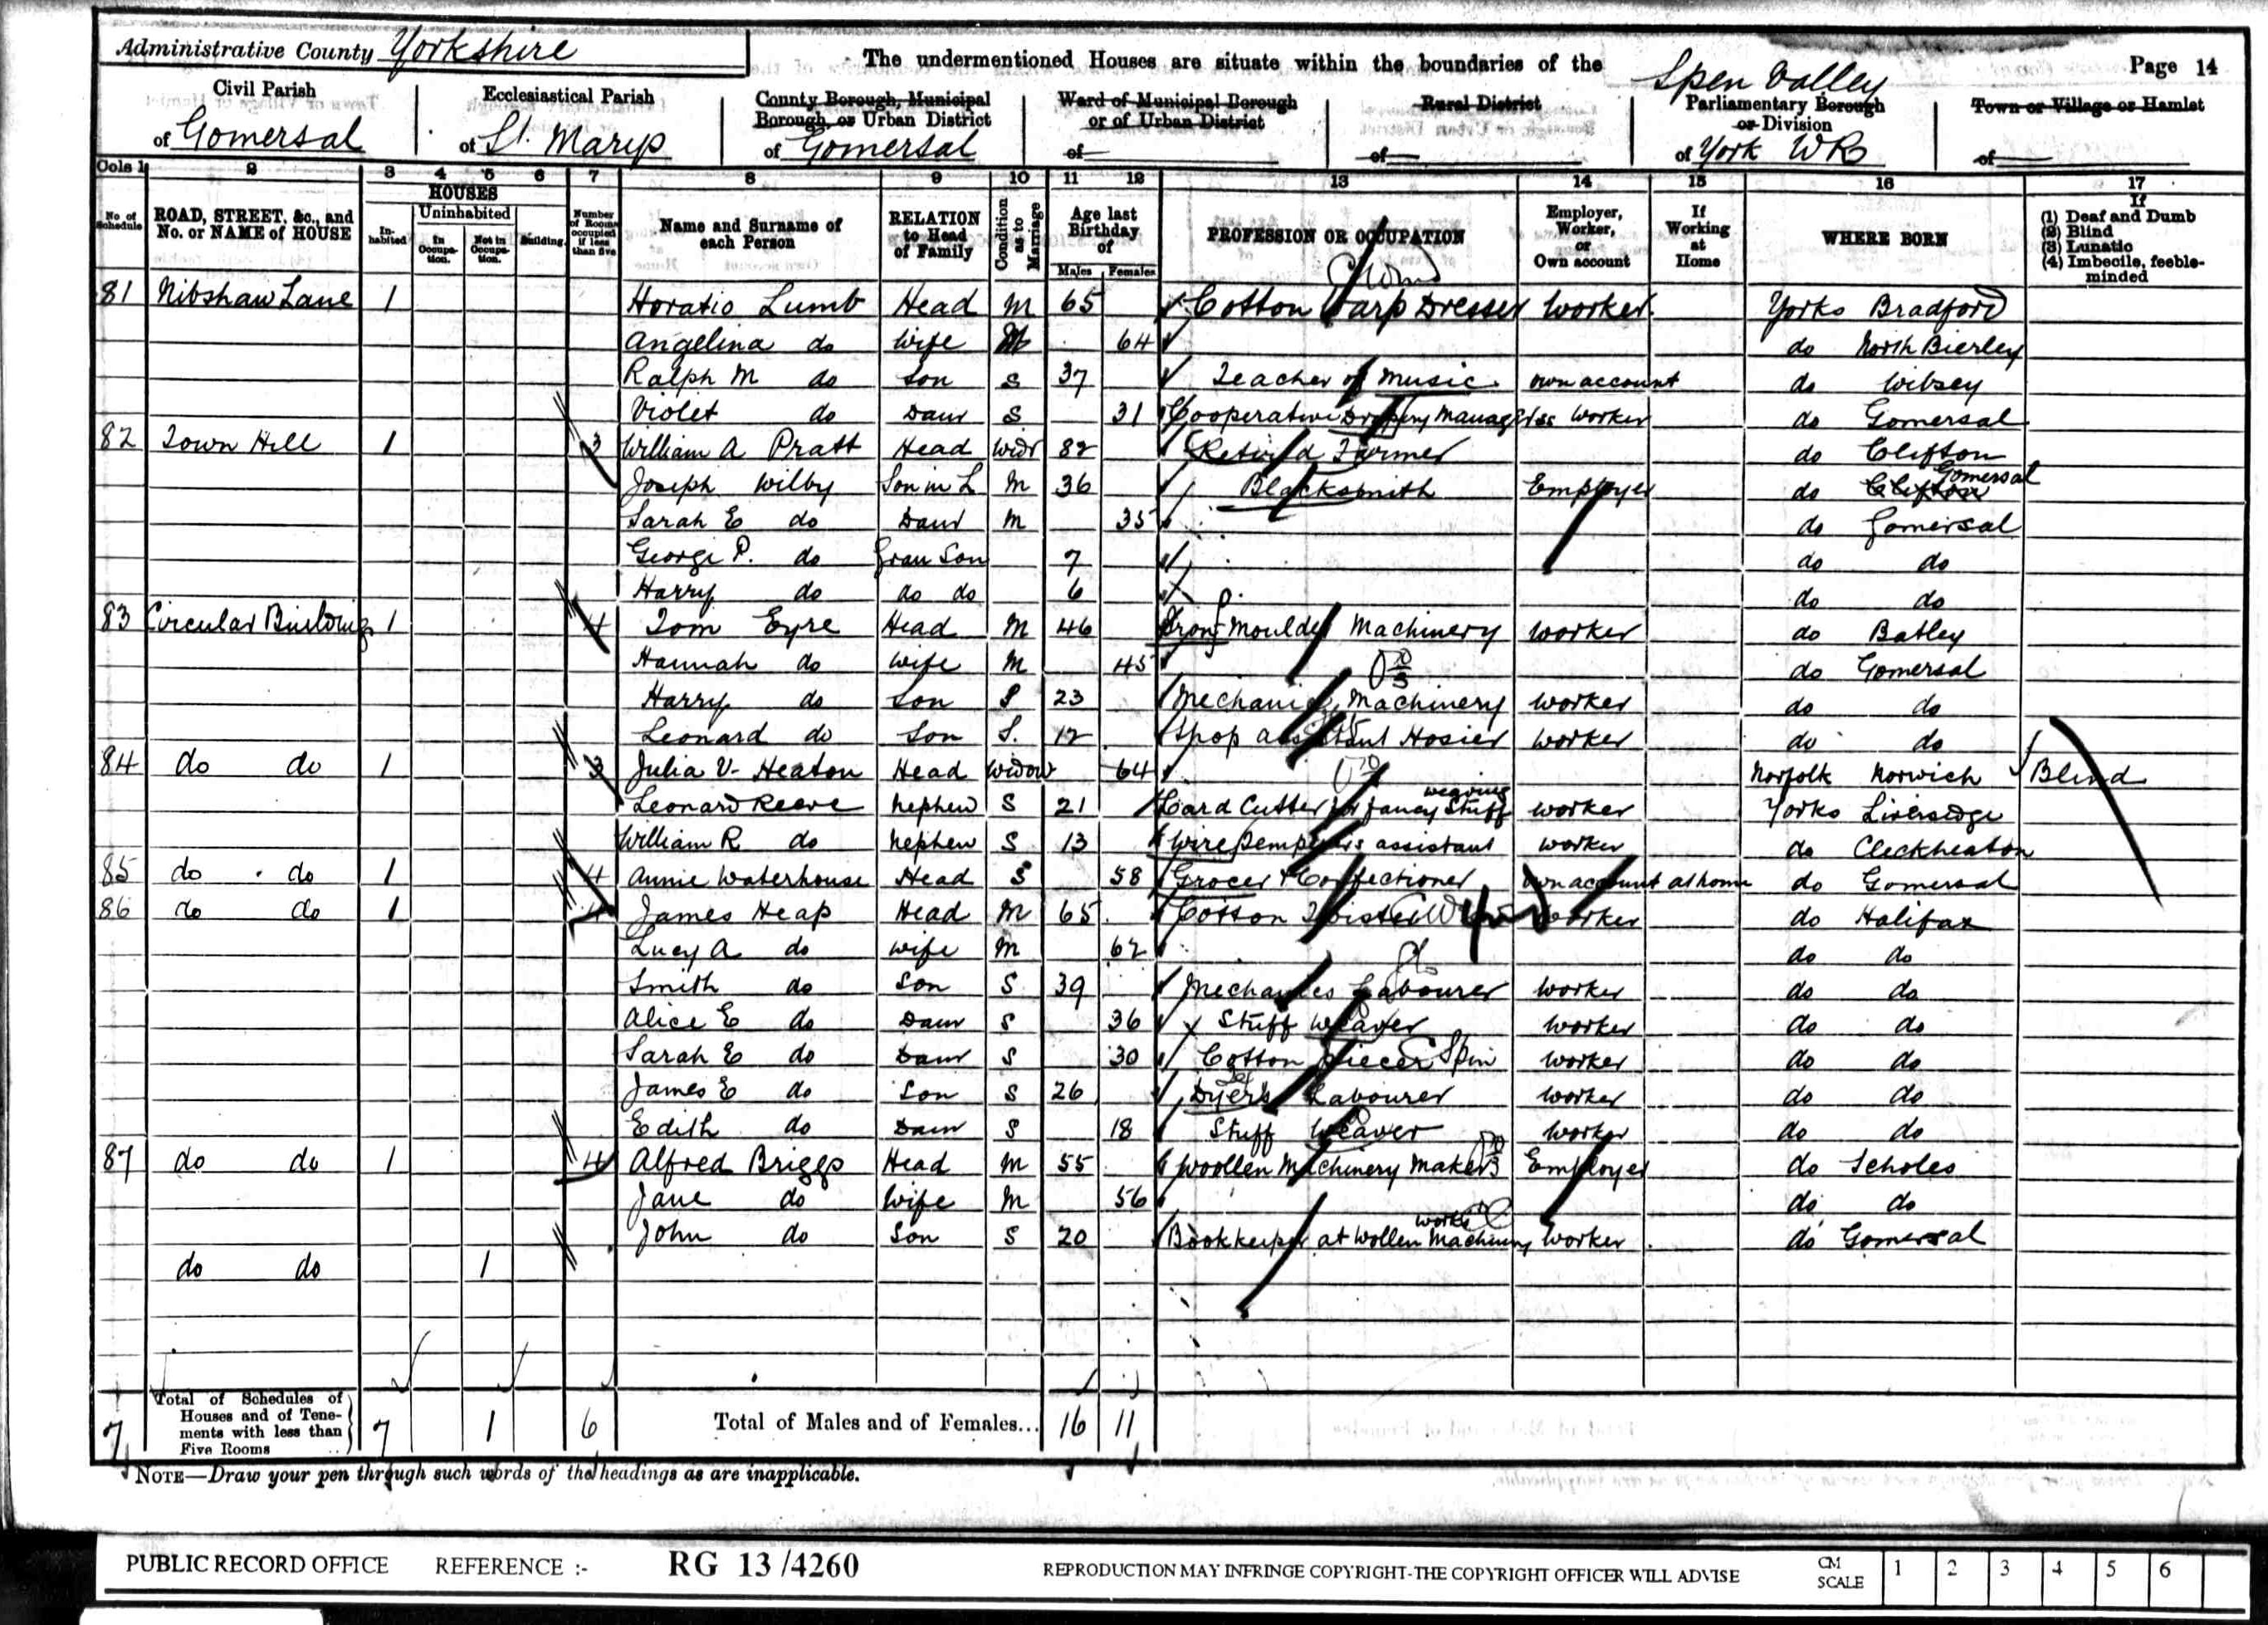 Administrative County Yorkshire
The undermentioned Houses are situate within the boundaries of the
Page 14
Civil Parish of Gomersal
Ecclesiastical Parish of St. Marys
County Borough, Municipal Borough, or Urban District of Gomersal
Ward of Municipal Borough or of Urban District of
Rural District of
Spen Valley
Parliamentary Borough or Division of York WR
Town or Village or Hamlet of
Cols 1 2 3 4 5 6 7 8 9 10 11 12 13 14 15 16 17
No of Schedule
ROAD, STREET, &c., and No. or NAME of HOUSE
HOUSES
Inhabited
Uninhabited
In Occupation.
Not in Occupation.
Building.
Number of Rooms occupied if less than five
Name and Surname of each Person
RELATION to Head of Family
Condition as to Marriage
Age last Birthday of
Males Females
PROFESSION OR OCCUPATION
Employer, Worker, or Own account
If Working at Home
WHERE BORN
If
(1) Deaf and Dumb
(2) Blind
(3) Lunatic
(4) Imbecile, feeble-minded
81 Nibshaw Lane 1 Horatio Lumb Head M 65 Cotton Warp Dresser Worker Yorks Bradford
Angelina do Wife M 64 do North Bierley
Ralph M do Son S 37 Teacher of Music own account do Wibsey
Violet do Daur S 31 Cooperative Drapery Manageress Worker do Gomersal
82 Town Hill 1 3 William A Pratt Head Widr 82 Retired Farmer do Clifton
Joseph Wilby Son in L M 36 Blacksmith Employer do Clifton Gomersal
Sarah E do Daur M 35 do Gomersal
George P. do Gran Son 7 do do
Harry do do do 6 do do
83 Circular Buildings 1 4 Tom Eyre Head M 46 Iron Moulder Machinery Worker do Batley
Hannah do Wife M 45 do Gomersal
Harry do Son S 23 Mechanic Machinery Worker do do
Leonard do Son S. 12 Shop assistant Hosier Worker do do
84 do do 1 3 Julia V. Heaton Head Widow 64 Norfolk Norwich Blind
Leonard Reeve Nephew S 21 Card Cutter for fancy Stuff weaving Worker Yorks Liversedge
William R do Nephew S 13 Wire Temperers assistant Worker do Cleckheaton
85 do do 1 4 Annie Waterhouse Head S 58 Grocer & Confectioner own account at home do Gomersal
86 do do 1 4 James Heap Head M 65 Cotton Twister Worker do Halifax
Lucy A do Wife M 62 do do
Smith do Son S 39 Mechanics Labourer Worker do do
Alice E do Daur S 36 Stuff Weaver Worker do do
Sarah E do Daur S 30 Cotton Piecer Spin Worker do do
James E do Son S 26 Dyer's Labourer Worker do do
Edith do Daur S 18 Stuff Weaver Worker do do
87 do do 1 4 Alfred Briggs Head M 55 Woollen Machinery Maker Employer do Scholes
Jane do Wife M 56 do do
John do Son S 20 Bookkeeper at Wollen Machinery works Worker do Gomersal
do do 1
7 Total of Schedules of Houses and of Tenements with less than Five Rooms 7 1 6 Total of Males and of Females... 16 11
NOTE—Draw your pen through such words of the headings as are inapplicable.
PUBLIC RECORD OFFICE REFERENCE :- RG 13/4260 REPRODUCTION MAY INFRINGE COPYRIGHT-THE COPYRIGHT OFFICER WILL ADVISE CM SCALE 1 2 3 4 5 6